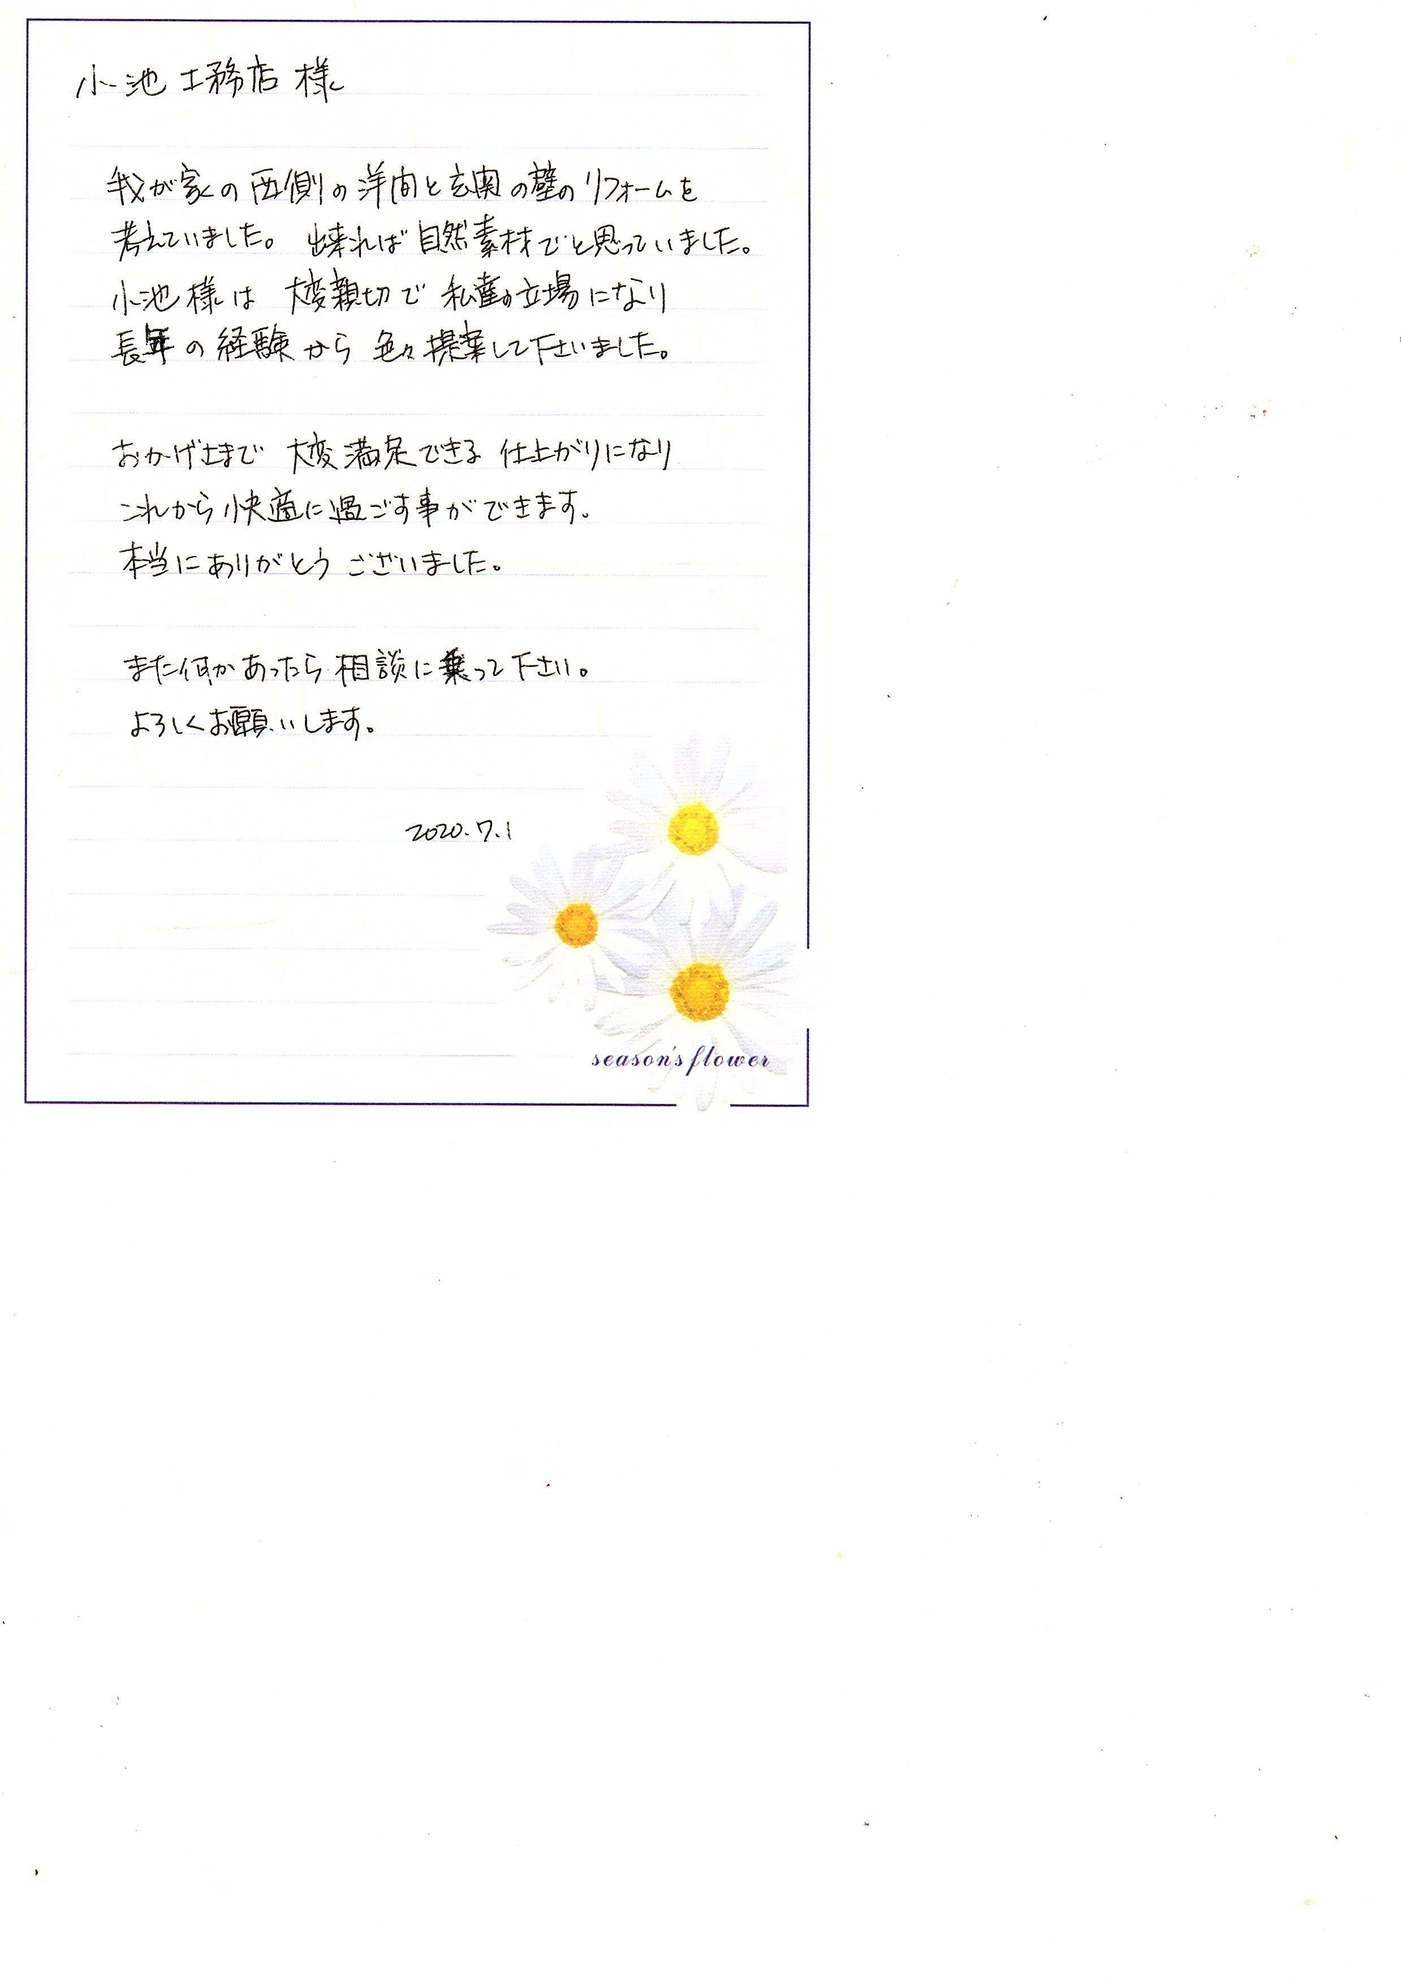 小池工務店 様
我が家の西側の洋間と玄関の壁のリフォームを
考えていました。 出来れば自然素材でと思っていました。
小池様は 大変親切で 私達の立場になり
長年の経験から 色々提案して下さいました。
おかげさまで 大変満足できる 仕上がりになり
これから快適に過ごす事ができます。
本当にありがとう ございました。
また何かあったら相談に乗って下さい。
よろしくお願いします。
2020.7.1
season's flower